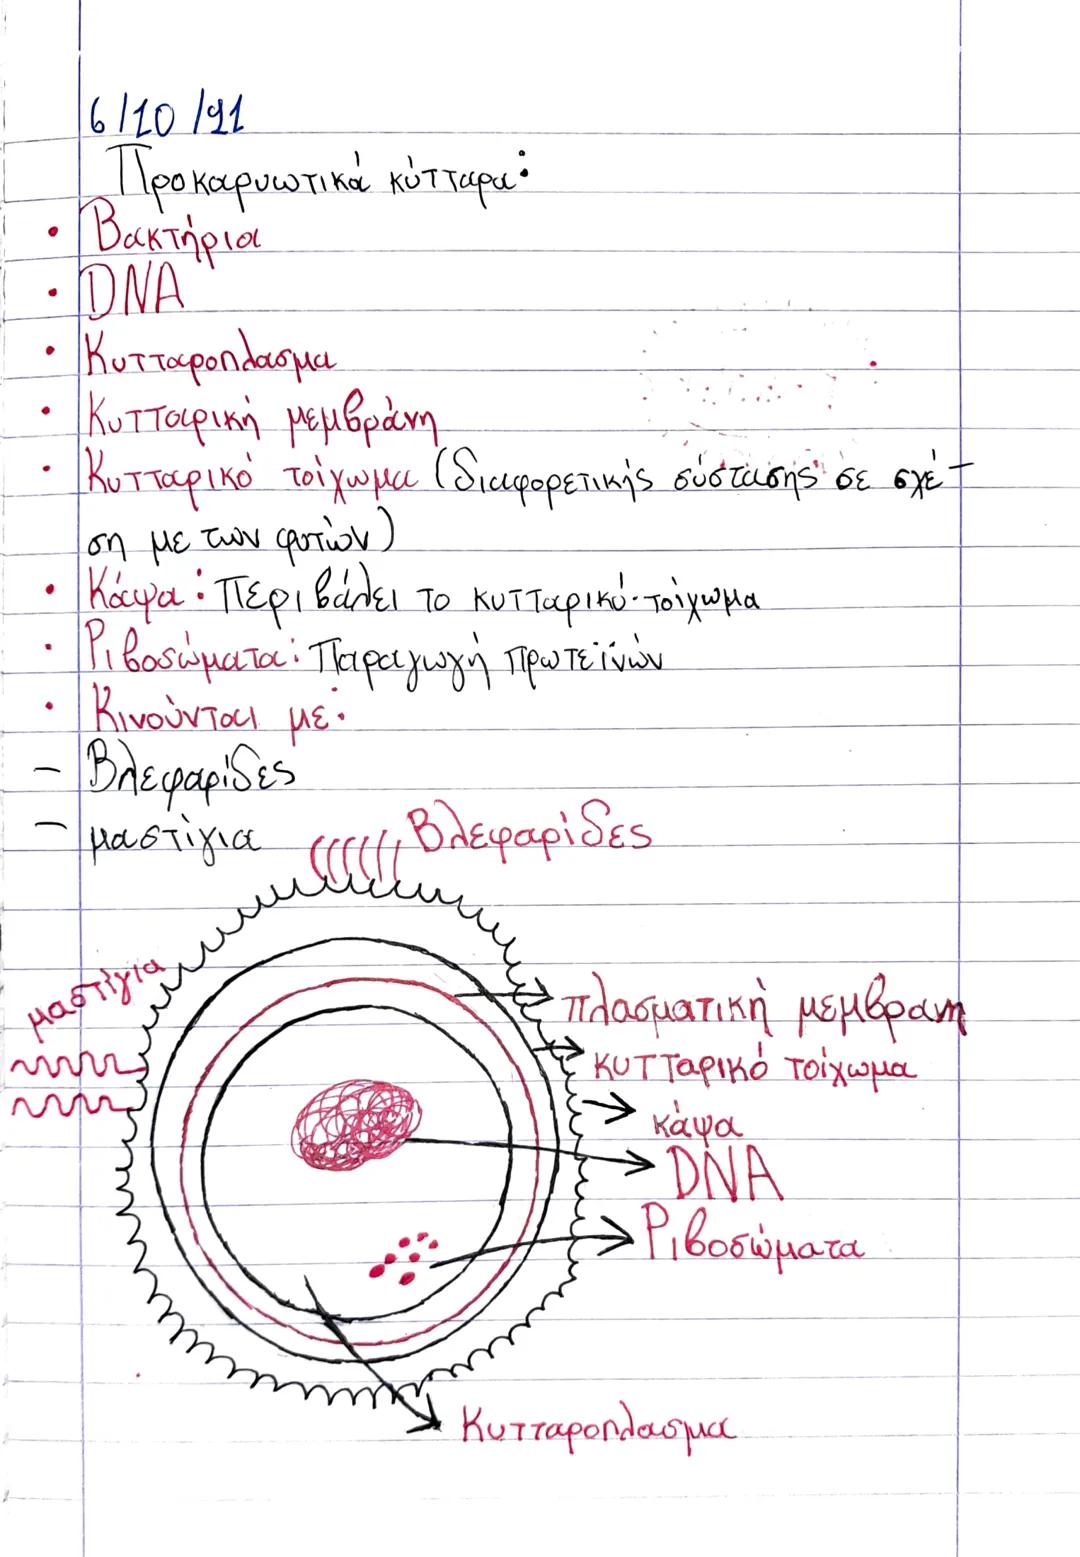 6/10/21
Προκαρυωτικά κύτταρα:
• Βακτήρια
• DNA
• Κυτταροπλασμα
• Κυτταρική μεμβράνη
• Κυτταρικό τοίχωμα (διαφορετικής σύστασης σε σχέ-
ση με των φυτών)
• Κάψα: Περιβάλει το κυτταρικό τοίχωμα
• Ριβοσώματα: Παραγωγή πρωτεϊνών
• Κινούνται με:
- Βλεφαρίδες
- μαστίγια
Βλεφαρίδες
μαστίγια
πλασματική μεμβρανη
κυτταρικό τοίχωμα
κάψα
DNA
Ριβοσώματα
Κυτταροπλασμα